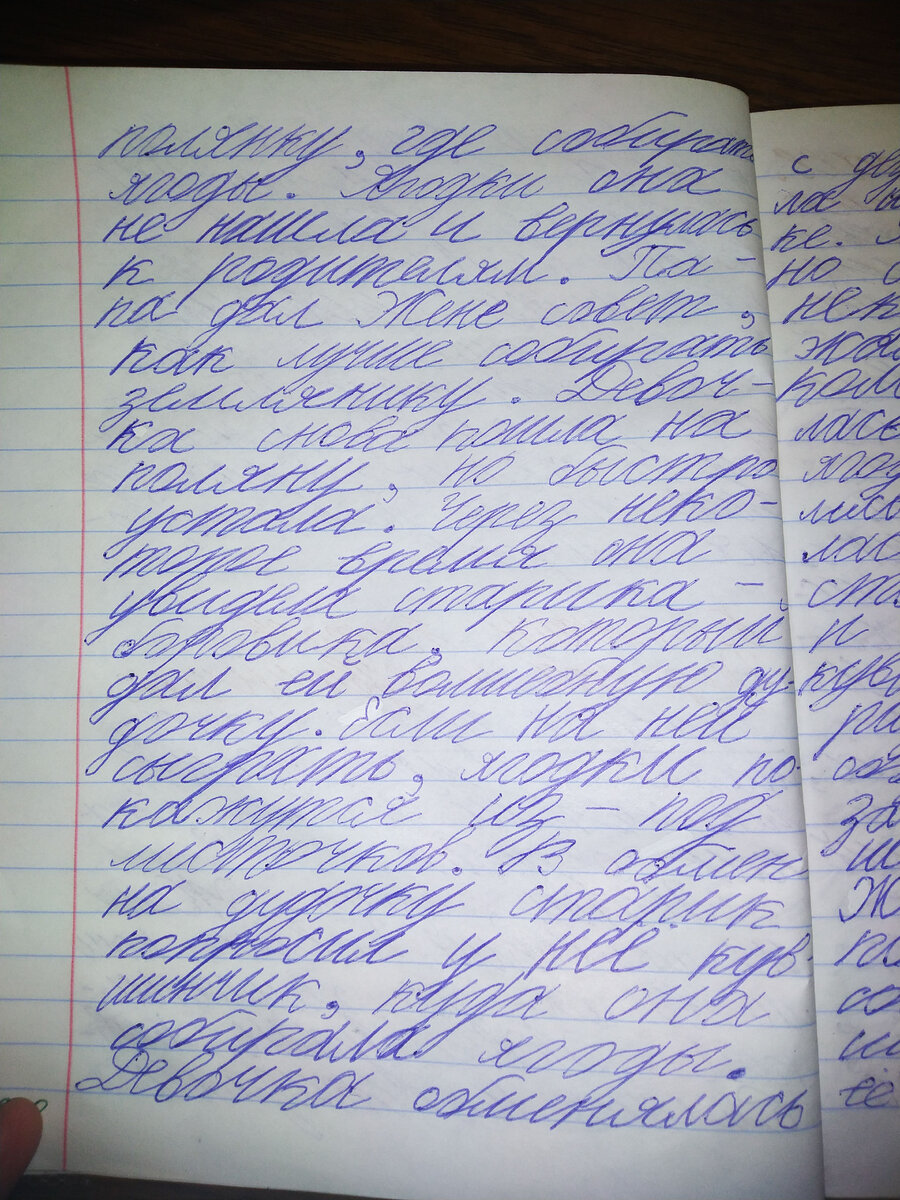 полянку, где собирали
ягоды. Ягодки она
не нашла и вернулась
к родителям. Па-
па дал Жене совет,
как лучше собирать
землянику. Девоч-
ка снова пошла на
поляну, но быстро
устала. Через неко-
торое время она
увидела старика -
боровика, который
дал ей волшебную ду-
дочку. Если на ней
сыграть, ягодки по-
кажутся из-под
листочков. В обмен
на дудочку старик
попросил у неё кув-
шинчик, куда она
собирала ягоды.
Девочка обменялась
с
ла
ке.
но
нек
лась
и
её